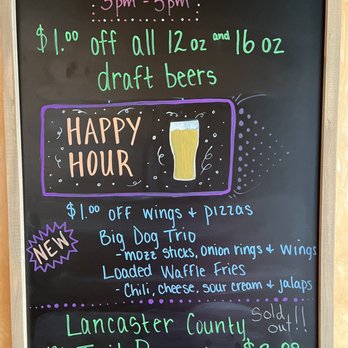 3pm - 5pm
$1.00 off all 12oz and 16oz
draft beers
HAPPY
HOUR
$1.00 OFF wings & pizzas
NEW
Big Dog Trio
- mozz sticks, onion rings & wings
Loaded Waffle Fries
- Chili, cheese, sour cream & jalaps
Lancaster County
Sold
out!!